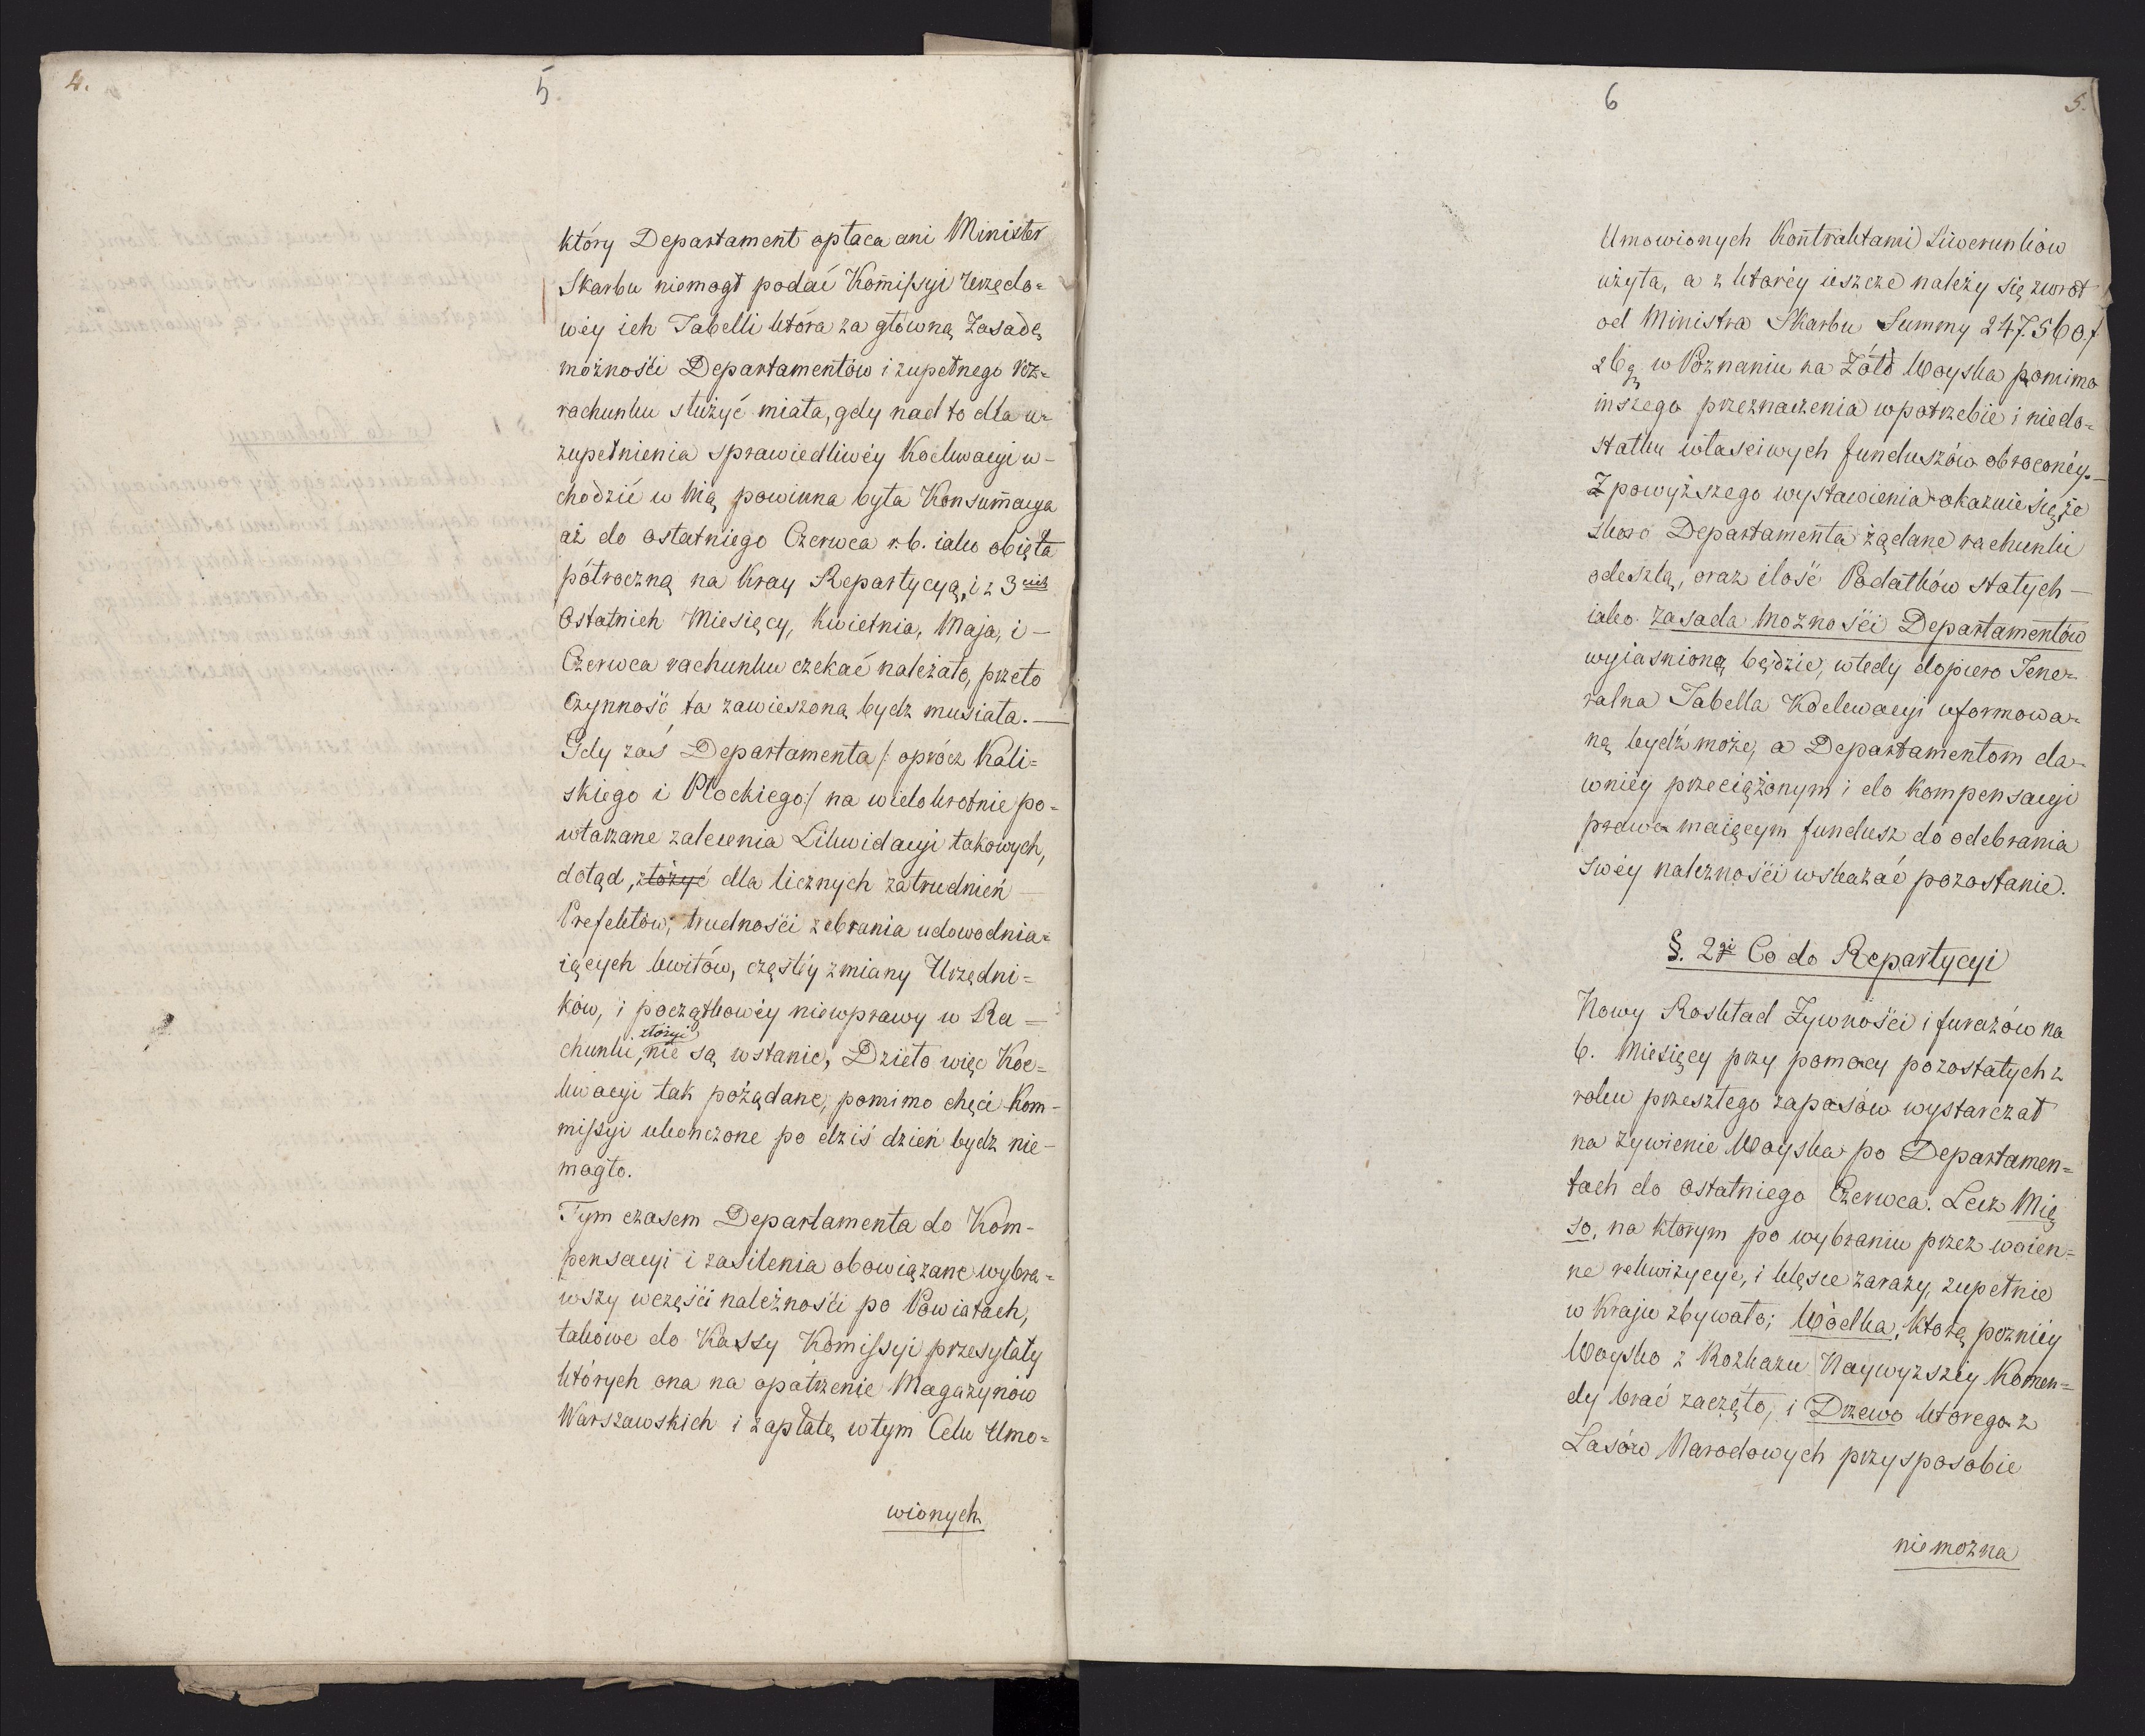 4.
5
który Departament opłaca ani Minister
Skarbu niemogł podać Kom̄issyi Urzędo=
wéy ich Tabelli która za główną Zasadę
możności Departamentów i zupełnego roz=
rachunku służyć miała, gdy nad to dla u=
zupełnienia sprawiedliwéy Koekwacyi w-
chodzić w nią powinna była Konsum̄acya
aż do ostatniego Czerwca r. b. iako obięta
półroczną na Kray Repartycyą, i z 3ech
Ostatnich Miesięcy, Kwietnia, Maja, i —
Czerwca rachunku czekać należało, przeto
Czynność ta zawieszoną bydz musiała. —
Gdy zaś Departamenta /: oprócz Kali=
skiego i Płockiego :/ na wielokrotnie po=
wtarzane zalecenia Likwidacyi takowych,
dotąd, złożyć dla licznych zatrudnień —
Prefektów, trudności zebrania udowodnia=
iących kwitów, częstéy zmiany Urzędni=
ków, i początkowéy niewprawy w Ra=
złożyć
chunki, nie są wstanie, Dzieło więc Koe=
kwacyi tak pożądane, pomimo chęci Kom-
missyi ukonczone po dziś dzień bydz nie-
mogło.
Tym czasem Departamenta do Kom-
pensacyi i zasilenia obowiązane wybra=
wszy wczęści należności po Powiatach,
takowe do Kassy Komissyi przesyłały
których ona na opatrzenie Magazynów
Warszawskich i zapłatę wtym Celu Umo=
wionych
6
5.
Umowionych Kontraktami Liwerunków
użyła, a z któréy ieszcze należy się zwrot
od Ministra Skarbu Summy 247.560 f
26 g w Poznaniu na Żółd Woyska pomimo
inszego przeznaczenia wpotrzebie i niedo=
statku właściwych funduszów obroconéy.—
Z powyższego wystawienia okazuie się, że
skoro Departamenta żądane rachunki
odeszlą, oraz ilość Podatków stałych —
iako zasada Możności Departamentów
wyiasnioną będzie, wtedy dopiero Jene=
ralna Tabella Koekwacyi uformowa=
ną bydź może, a Departamentom da=
wniéy przeciążonym i do Kompensacyi
prawo maiącym fundusz do odebrania
swéy należności wskazać pozostanie.
§. 2gi Co do Repartycyi
Nowy Roskład Żywności i furazów na
6. Miesięcy przy pomocy pozostałych z
roku przeszłego zapasów wystarczał
na żywienie Woyska po Departamen=
tach do ostatniego Czerwca. Lecz Mię
so, na ktorym po wybraniu przez woien=
ne rekwizycye, i klęsce zarazy, zupełnie
w Kraju zbywało; Wódka, którą pozniéy
Woysko z Rozkazu Naywyższéy Komen=
dy brać zaczęło, i Drzewo którego z
Lasów Narodowych przysposobić
niemożna